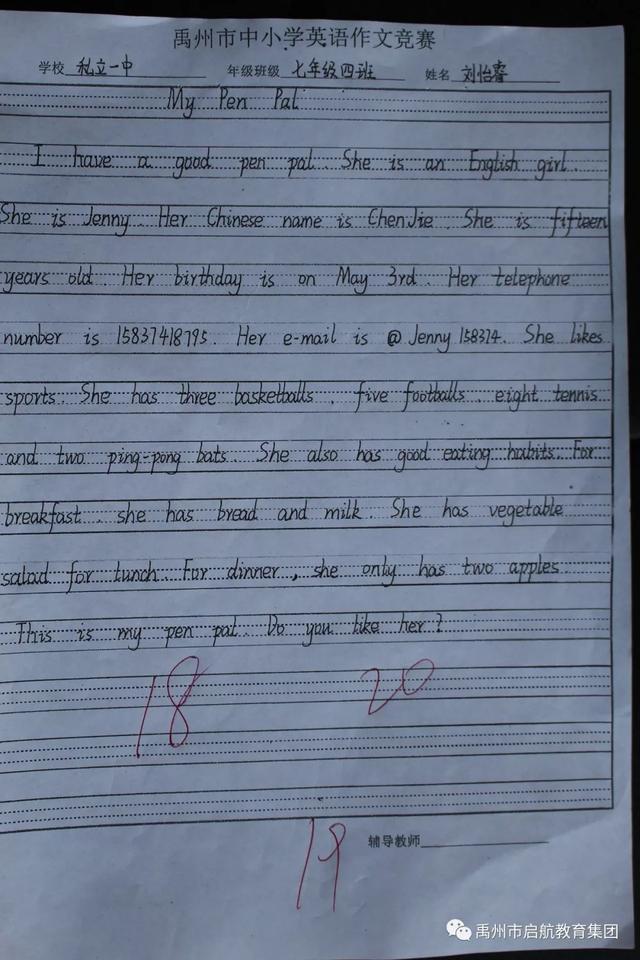 禹州市中小学英语作文竞赛
学校 私立一中 年级班级 七年级四班 姓名 刘怡睿
My Pen Pal
I have a good pen pal. She is an English girl.
She is Jenny. Her Chinese name is ChenJie. She is fifteen
years old. Her birthday is on May 3rd. Her telephone
number is 15837418795. Her e-mail is @ Jenny 158374. She likes
sports. She has three basketballs, five footballs, eight tennis
and two ping-pong bats. She also has good eating habits. For
breakfast, she has bread and milk. She has vegetable
salad for lunch. For dinner, she only has two apples
This is my pen pal. Do you like her?
18 20
19
辅导教师
禹州市启航教育集团